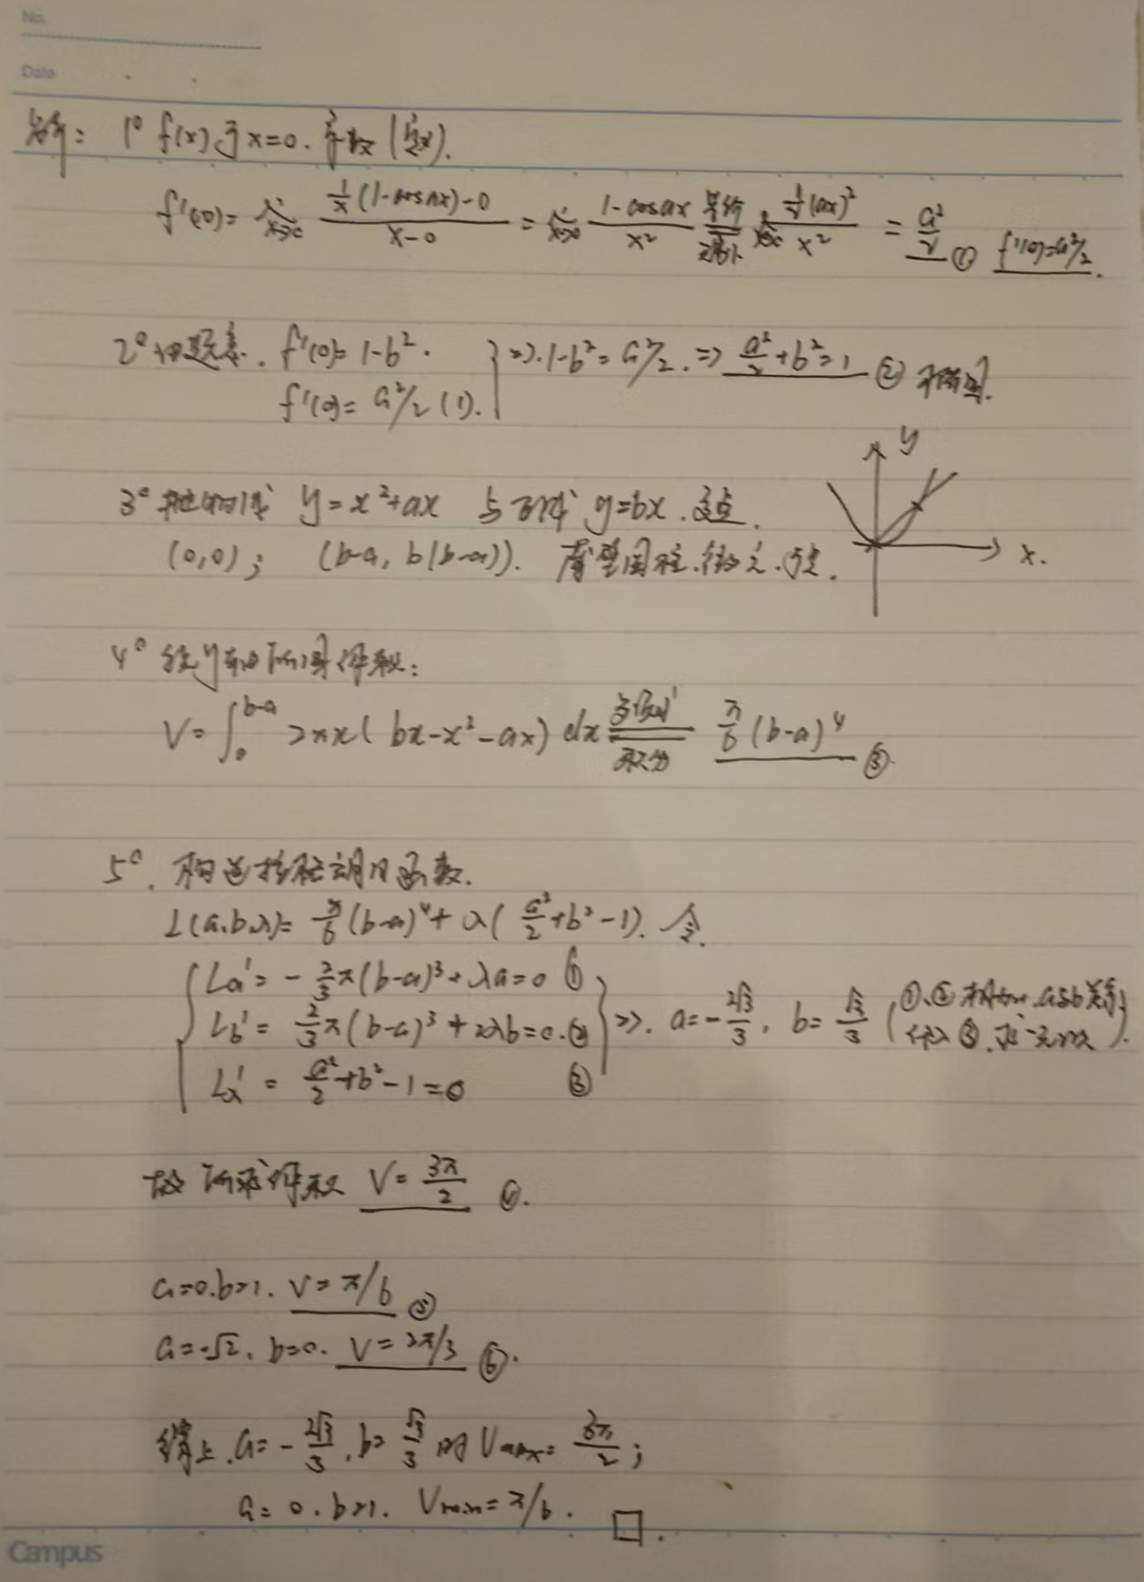 No.
Date
解: 1° f(x)于x=0. 导数(定义).
f'(0)= lim x→0 (1/x (1-cosax)-0)/(x-0) = lim x→0 (1-cosax)/x² = lim x→0 (1/2 (ax)²)/x² = a²/2 ① f'(0)=a²/2.
2° 由题意. f'(0)= 1-b². } ⇒. 1-b² = a²/2. ⇒ a²/2 + b² = 1 ②
f'(0)= a²/2 (1).
y
3° 抛物线 y=x²+ax 与直线 y=bx. 交点.
(0,0); (b-a, b(b-a)).
x.
4° 绕y轴所得体积:
V= ∫₀^{b-a} 2πx( bx-x²-ax) dx = π/6 (b-a)⁴ ③
积分
5°. 构造拉格朗日函数.
L(a.b.λ)= π/6 (b-a)⁴+ λ( a²/2 +b²-1). 令.
La' = - 2/3 π(b-a)³+ λa=0 ①
Lb' = 2/3 π(b-a)³ + 2λb=0. ② ⇒. a= -2√3/3, b= √3/3
Lλ' = a²/2 +b²-1=0 ③
故 所求体积 V= 3π/2 ④.
a=0.b=1. V= π/6 ⑤
a=-√2, b=0. V= 2π/3 ⑥.
综上. a= - 2√3/3 . b= √3/3 时 Vmax= 3π/2 ;
a= 0. b=1. Vmin= π/6. □.
Campus